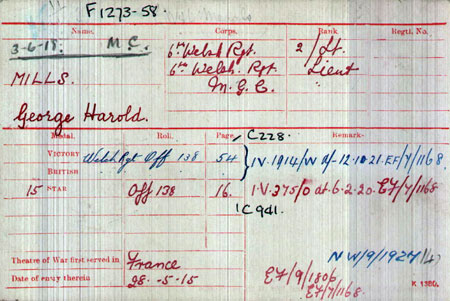 F1273-58.
Name. Corps. Rank. Regtl. No.
3-6-18. M.C.
6th Welsh Rgt. 2/Lt.
MILLS. 6th Welsh. Rgt. Lieut
M.G.C.
George Harold.
Medal. Roll. Page. C228. Remarks
VICTORY Welsh Rgt Off 138 54 1.V.1914/W 12.10.21. EF/7/1168
BRITISH
15 STAR Off 138 16. 1.V.375/O dt 6.2.20. EF/7/1168
1C941.
NW/9/1927
Theatre of War first served in France
Date of entry therein 28-5-15
EF/9/1806
EF/7/1168.
K 1380.